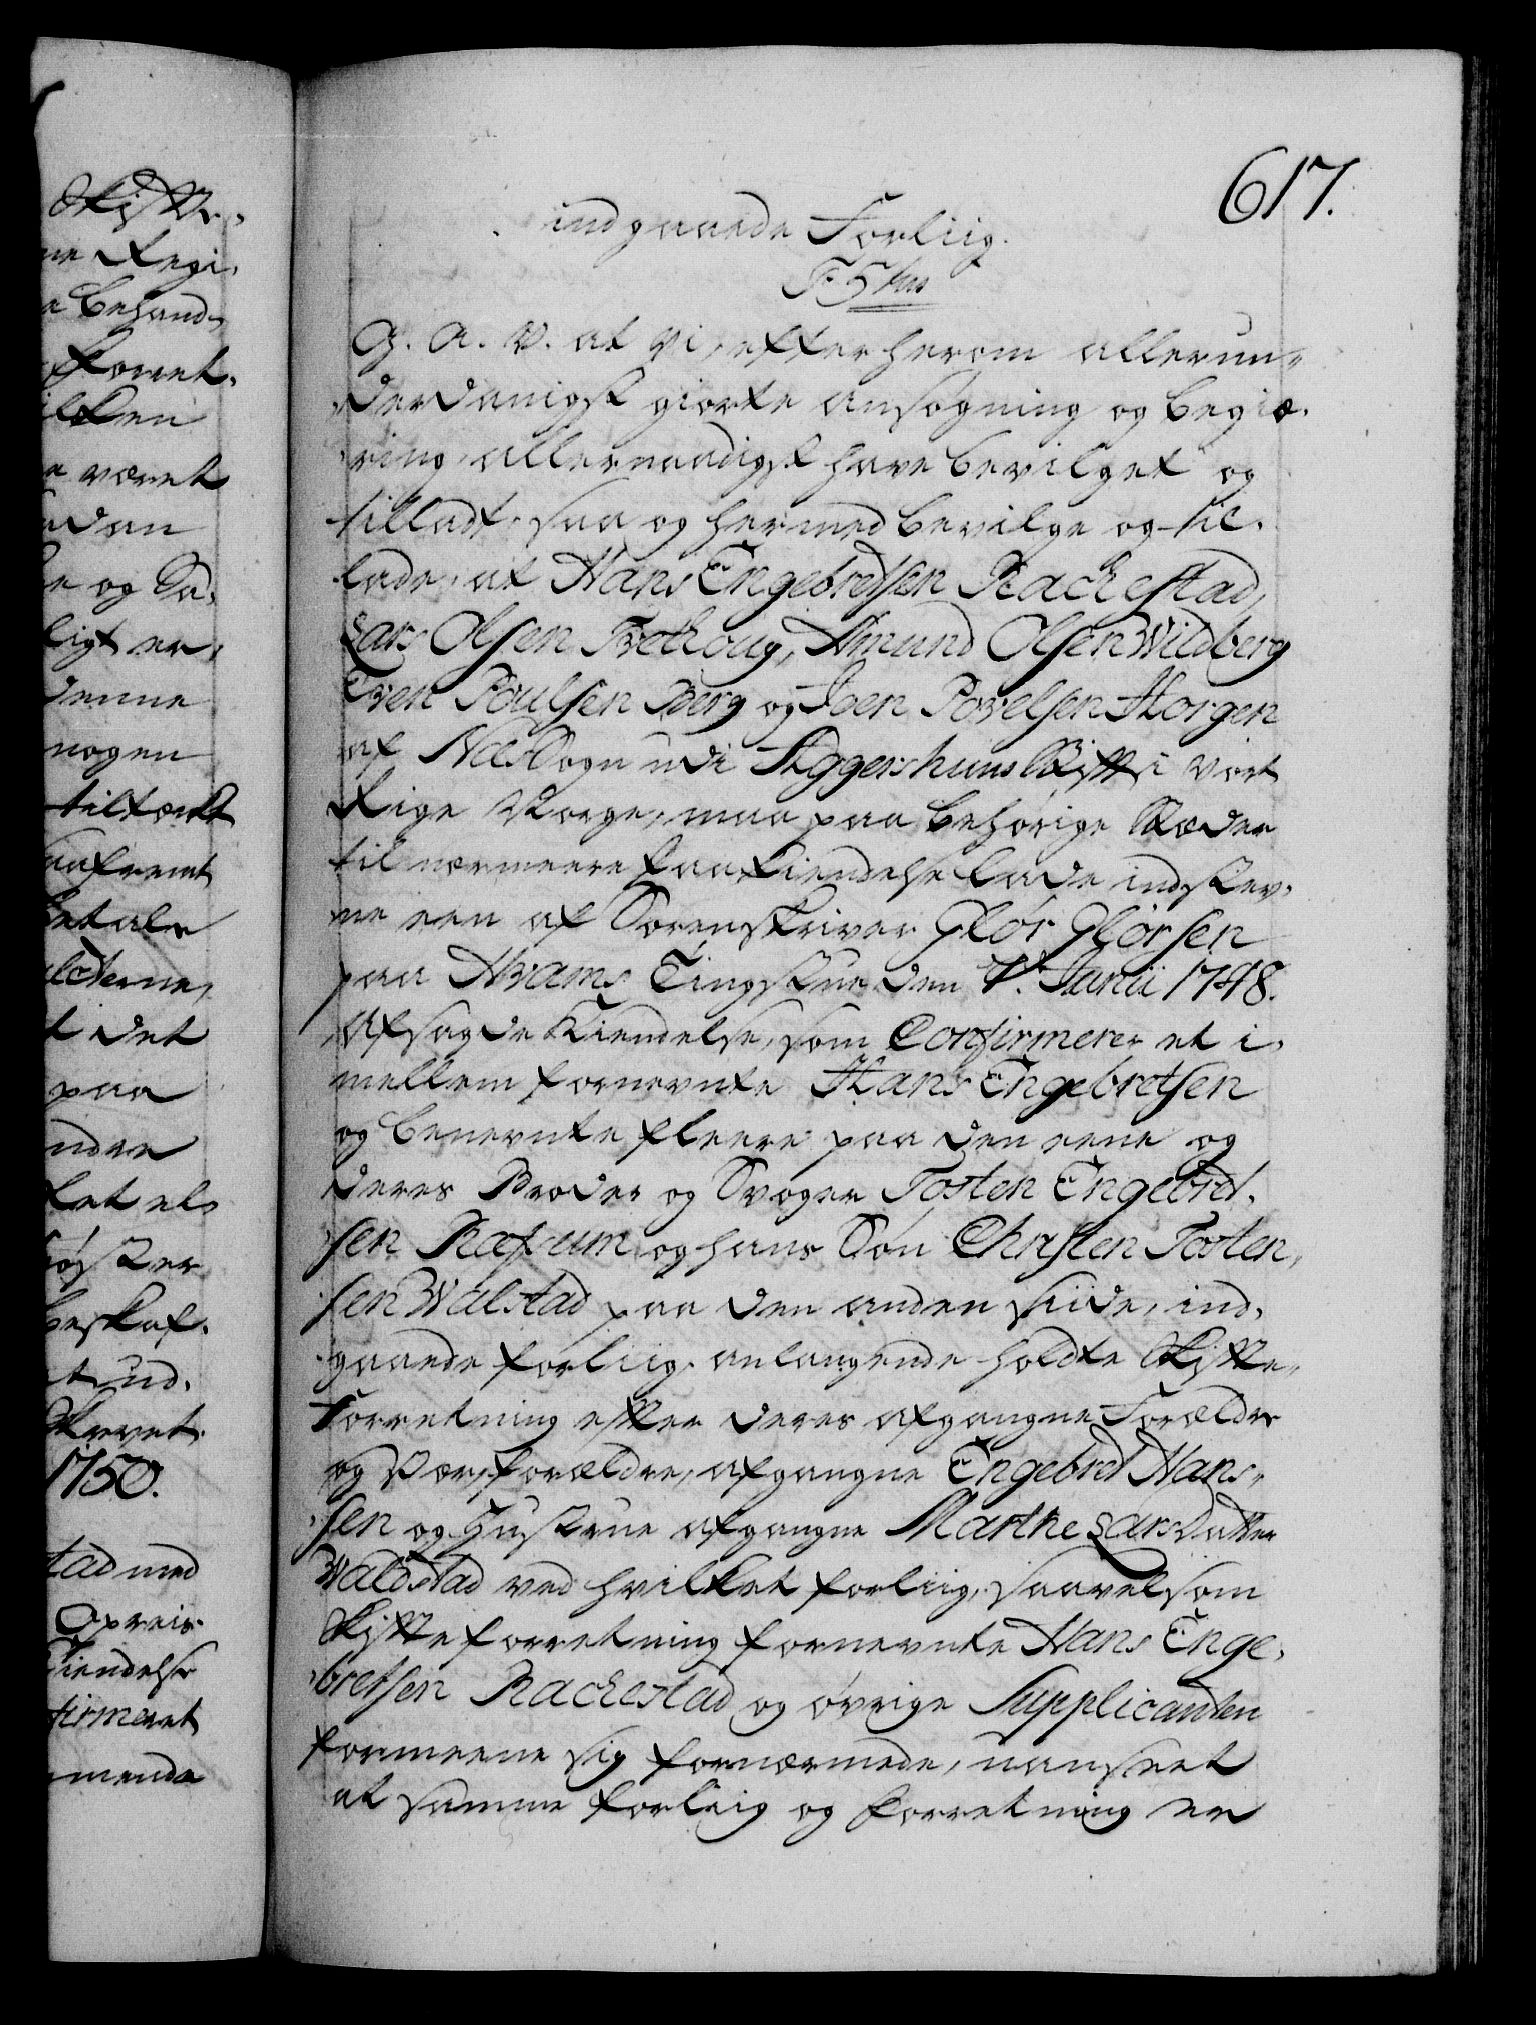 617.
indgaaede Forliig.
F 5tus
G. A. V. at Vi, efter herom allerun-
derdanigst giorte ansøgning og begiæ-
ring, allernaadigst have bevilget og
tilladt, saa og hermed bevilge og til-
lade, at Hans Engebredsen Rachestad,
Lars Olsen Trethoug, Amund Olsen Wildberg
Even Poulsen Berg og Joen Povelsen Horgen
af Næs Sogn udi Aggershuus Stift i vort
Rige Norge, maa paa behørige Stæder
til nærmeere Paakiendelse lade indstev-
ne een af Sorenskriver Glør Glørsen
paa Hvams Tingstue den 7de Junii 1748.
afsagde Kiendelse, som Confirmerer et i-
mellem fornevnte Hans Engebretsen
og benevnte fleere paa den eene og
deres Broder og Svoger Tosten Engebret-
sen Rafsum og hans Søn Christen Tosten-
sen Walstad paa den anden side, ind-
gaaede forliig, anlangende holdte Skifte-
Forretning efter deres afgangne Forældre
og Sverforældre, afgangne Engebret Hans-
sen og Hustrue afgangne Marthe Larsdatter
Waldstad ved hvilket forliig, saavelsom
Skifteforretning fornevnte Hans Enge-
bretsen Rachestad og øvrige Supplicanten
formeene sig fornærmede, uanseet
at samme forliig og forretning er